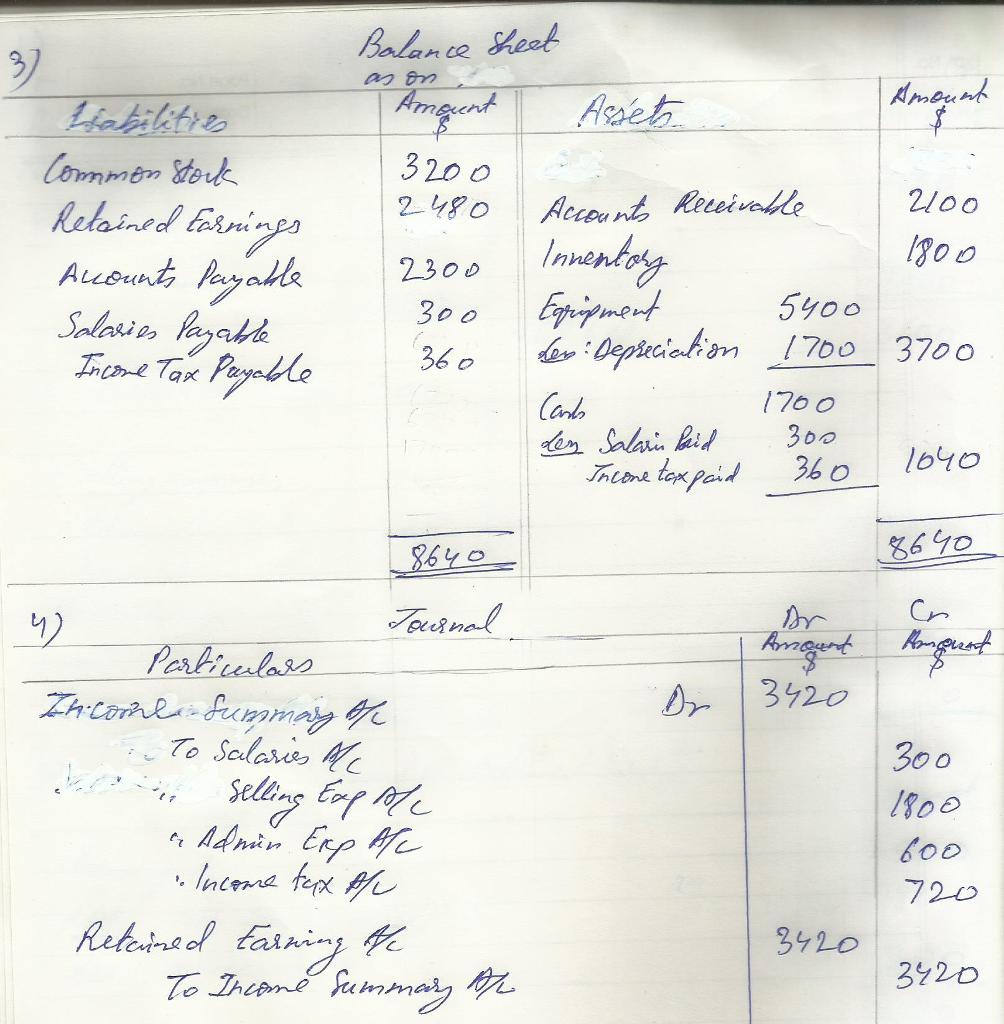 3) Balance Sheet
as on
Liabilities Amount $ Assets Amount $
Common Stock 3200
Retained Earnings 2480 Accounts Receivable 2100
Accounts Payable 2300 Inventory 1800
Salaries Payable 300 Equipment 5400
Income Tax Payable 360 Less: Depreciation 1700 3700
Cash 1700
Less Salaries Paid 300
Income tax paid 360 1040
8640 8640
4) Journal Dr Cr
Particulars Amount $ Amount $
Income Summary A/c Dr 3420
To Salaries A/c 300
" Selling Exp A/c 1800
" Admin Exp A/c 600
" Income tax A/c 720
Retained Earning A/c 3420
To Income Summary A/c 3420